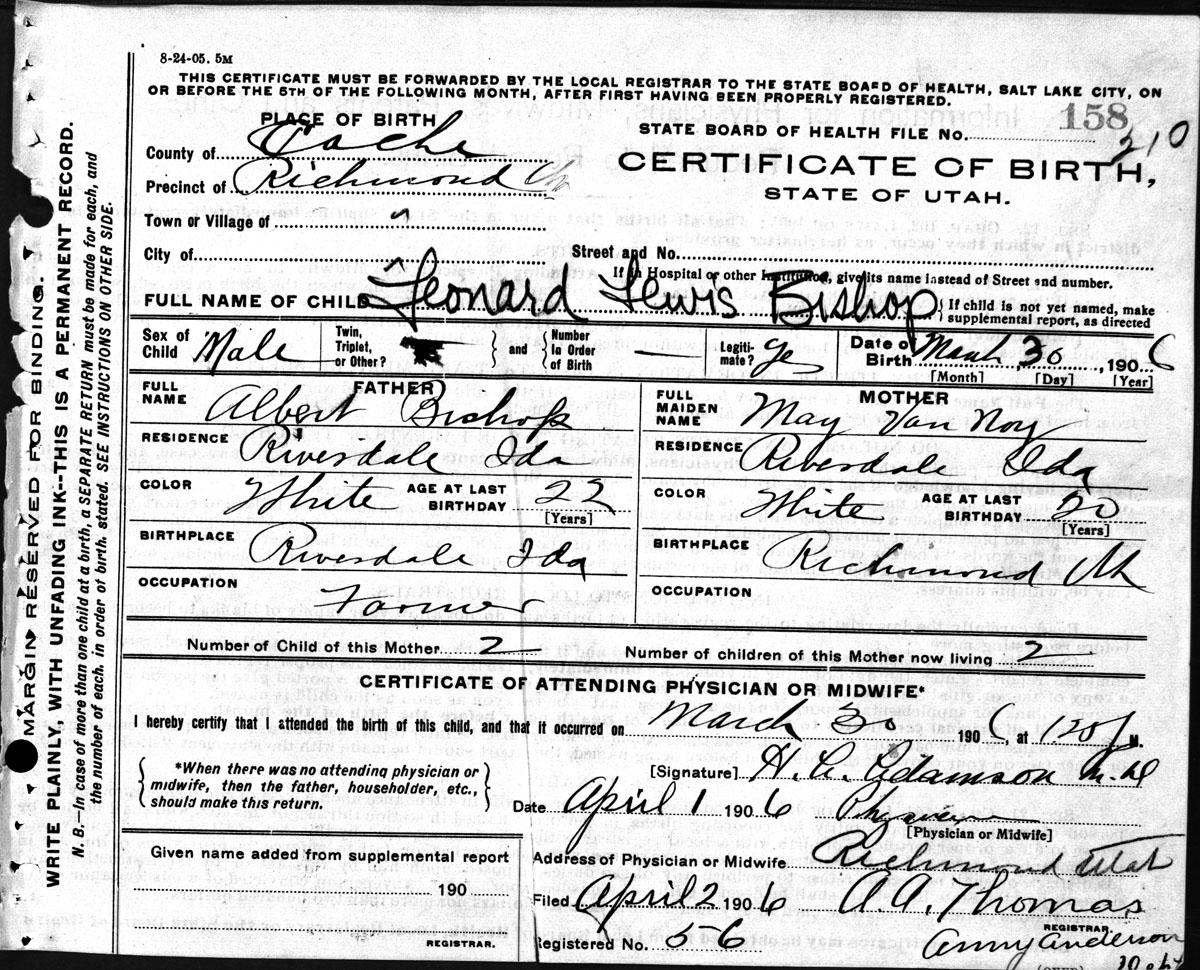 8-24-05. 5M
THIS CERTIFICATE MUST BE FORWARDED BY THE LOCAL REGISTRAR TO THE STATE BOARD OF HEALTH, SALT LAKE CITY, ON
OR BEFORE THE 5TH OF THE FOLLOWING MONTH, AFTER FIRST HAVING BEEN PROPERLY REGISTERED.
PLACE OF BIRTH
STATE BOARD OF HEALTH FILE No. 158 210
County of Cache
CERTIFICATE OF BIRTH,
Precinct of Richmond
STATE OF UTAH.
Town of Village of "
City of Street and No.
If in Hospital or other Institution, give its name instead of Street and number.
FULL NAME OF CHILD Leonard Lewis Bishop { If child is not yet named, make
supplemental report, as directed
Sex of Child Male Twin, Triplet, or Other? } and { Number in Order of Birth — Legiti-mate? yes Date of Birth March 30, 1906
[Month] [Day] [Year]
FATHER
FULL NAME Albert Bishop
RESIDENCE Riversdale Ida
COLOR White AGE AT LAST BIRTHDAY 22
[Years]
BIRTHPLACE Riversdale Ida
OCCUPATION Farmer
MOTHER
FULL MAIDEN NAME May Van Noy
RESIDENCE Riversdale Ida
COLOR White AGE AT LAST BIRTHDAY 20
[Years]
BIRTHPLACE Richmond Ut
OCCUPATION
Number of Child of this Mother 2 Number of children of this Mother now living 2
CERTIFICATE OF ATTENDING PHYSICIAN OR MIDWIFE*
I hereby certify that I attended the birth of this child, and that it occurred on March 30 1906 at 120 P M.
{ *When there was no attending physician or
midwife, then the father, householder, etc.,
should make this return. }
[Signature] H. C. Adamson M.D
Date April 1 1906 Physician
[Physician or Midwife]
Given name added from supplemental report
190
REGISTRAR.
Address of Physician or Midwife Richmond Utah
Filed April 2 1906 A A. Thomas
REGISTRAR.
Registered No. 56 Amy Anderson
Depty
MARGIN RESERVED FOR BINDING.
WRITE PLAINLY, WITH UNFADING INK--THIS IS A PERMANENT RECORD.
N. B.—In case of more than one child at a birth, a SEPARATE RETURN must be made for each, and
the number of each, in order of birth, stated. SEE INSTRUCTIONS ON OTHER SIDE.